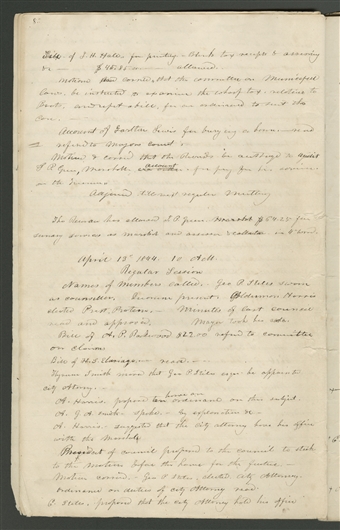 Bill of J. H. Hales for printing Blank tax receipts & assessing
&c — $46.25 — allowed.
Motioned and carried, that the committee on Municipal
Laws, be instructed to examine the school tax, relative to
and report a bill, for an ordinance to suit the
Case. —
Account of Zadthan Lewis for burying a horse — read
refered to
Motioned & carried that the be authorized to audit
J. P. Green, Marshall, account for pay for his services
in the
Adjourned till next regular Meeting
The allowed J. P. Green Marshal $64.25 for
services as marshal and assessor & collector in 4th ward.
April 13th 1844. 10 A.M.
Regular Session
Names of Members called. Geo P. Stiles sworn
as councillor. present. Alderman Harris
elected Prest. Protem. — Minutes of last council
read and approved. Mayor took his seat.
Bill of A. P. Rockwood $22.00 refered to committee
on claims
Bill of H. G. — read. —
Hyrum Smith moved that Geo P Stiles esqr. be appointed
city Attorney. —
A. Harris. proposed an ordinance on this subject.
A. G. A. Smith. spoke. in explanation &c —
A. Harris. suggested that the City attorney have his office
with the Marshal
President of council proposed to the council to stick
to the Motions before the house for the future. —
Motion carried. Geo P Stiles, elected City Attorney.
ordinance on duties of City Attorney read.
C. Stiles. proposed that the City Attorney hold his office